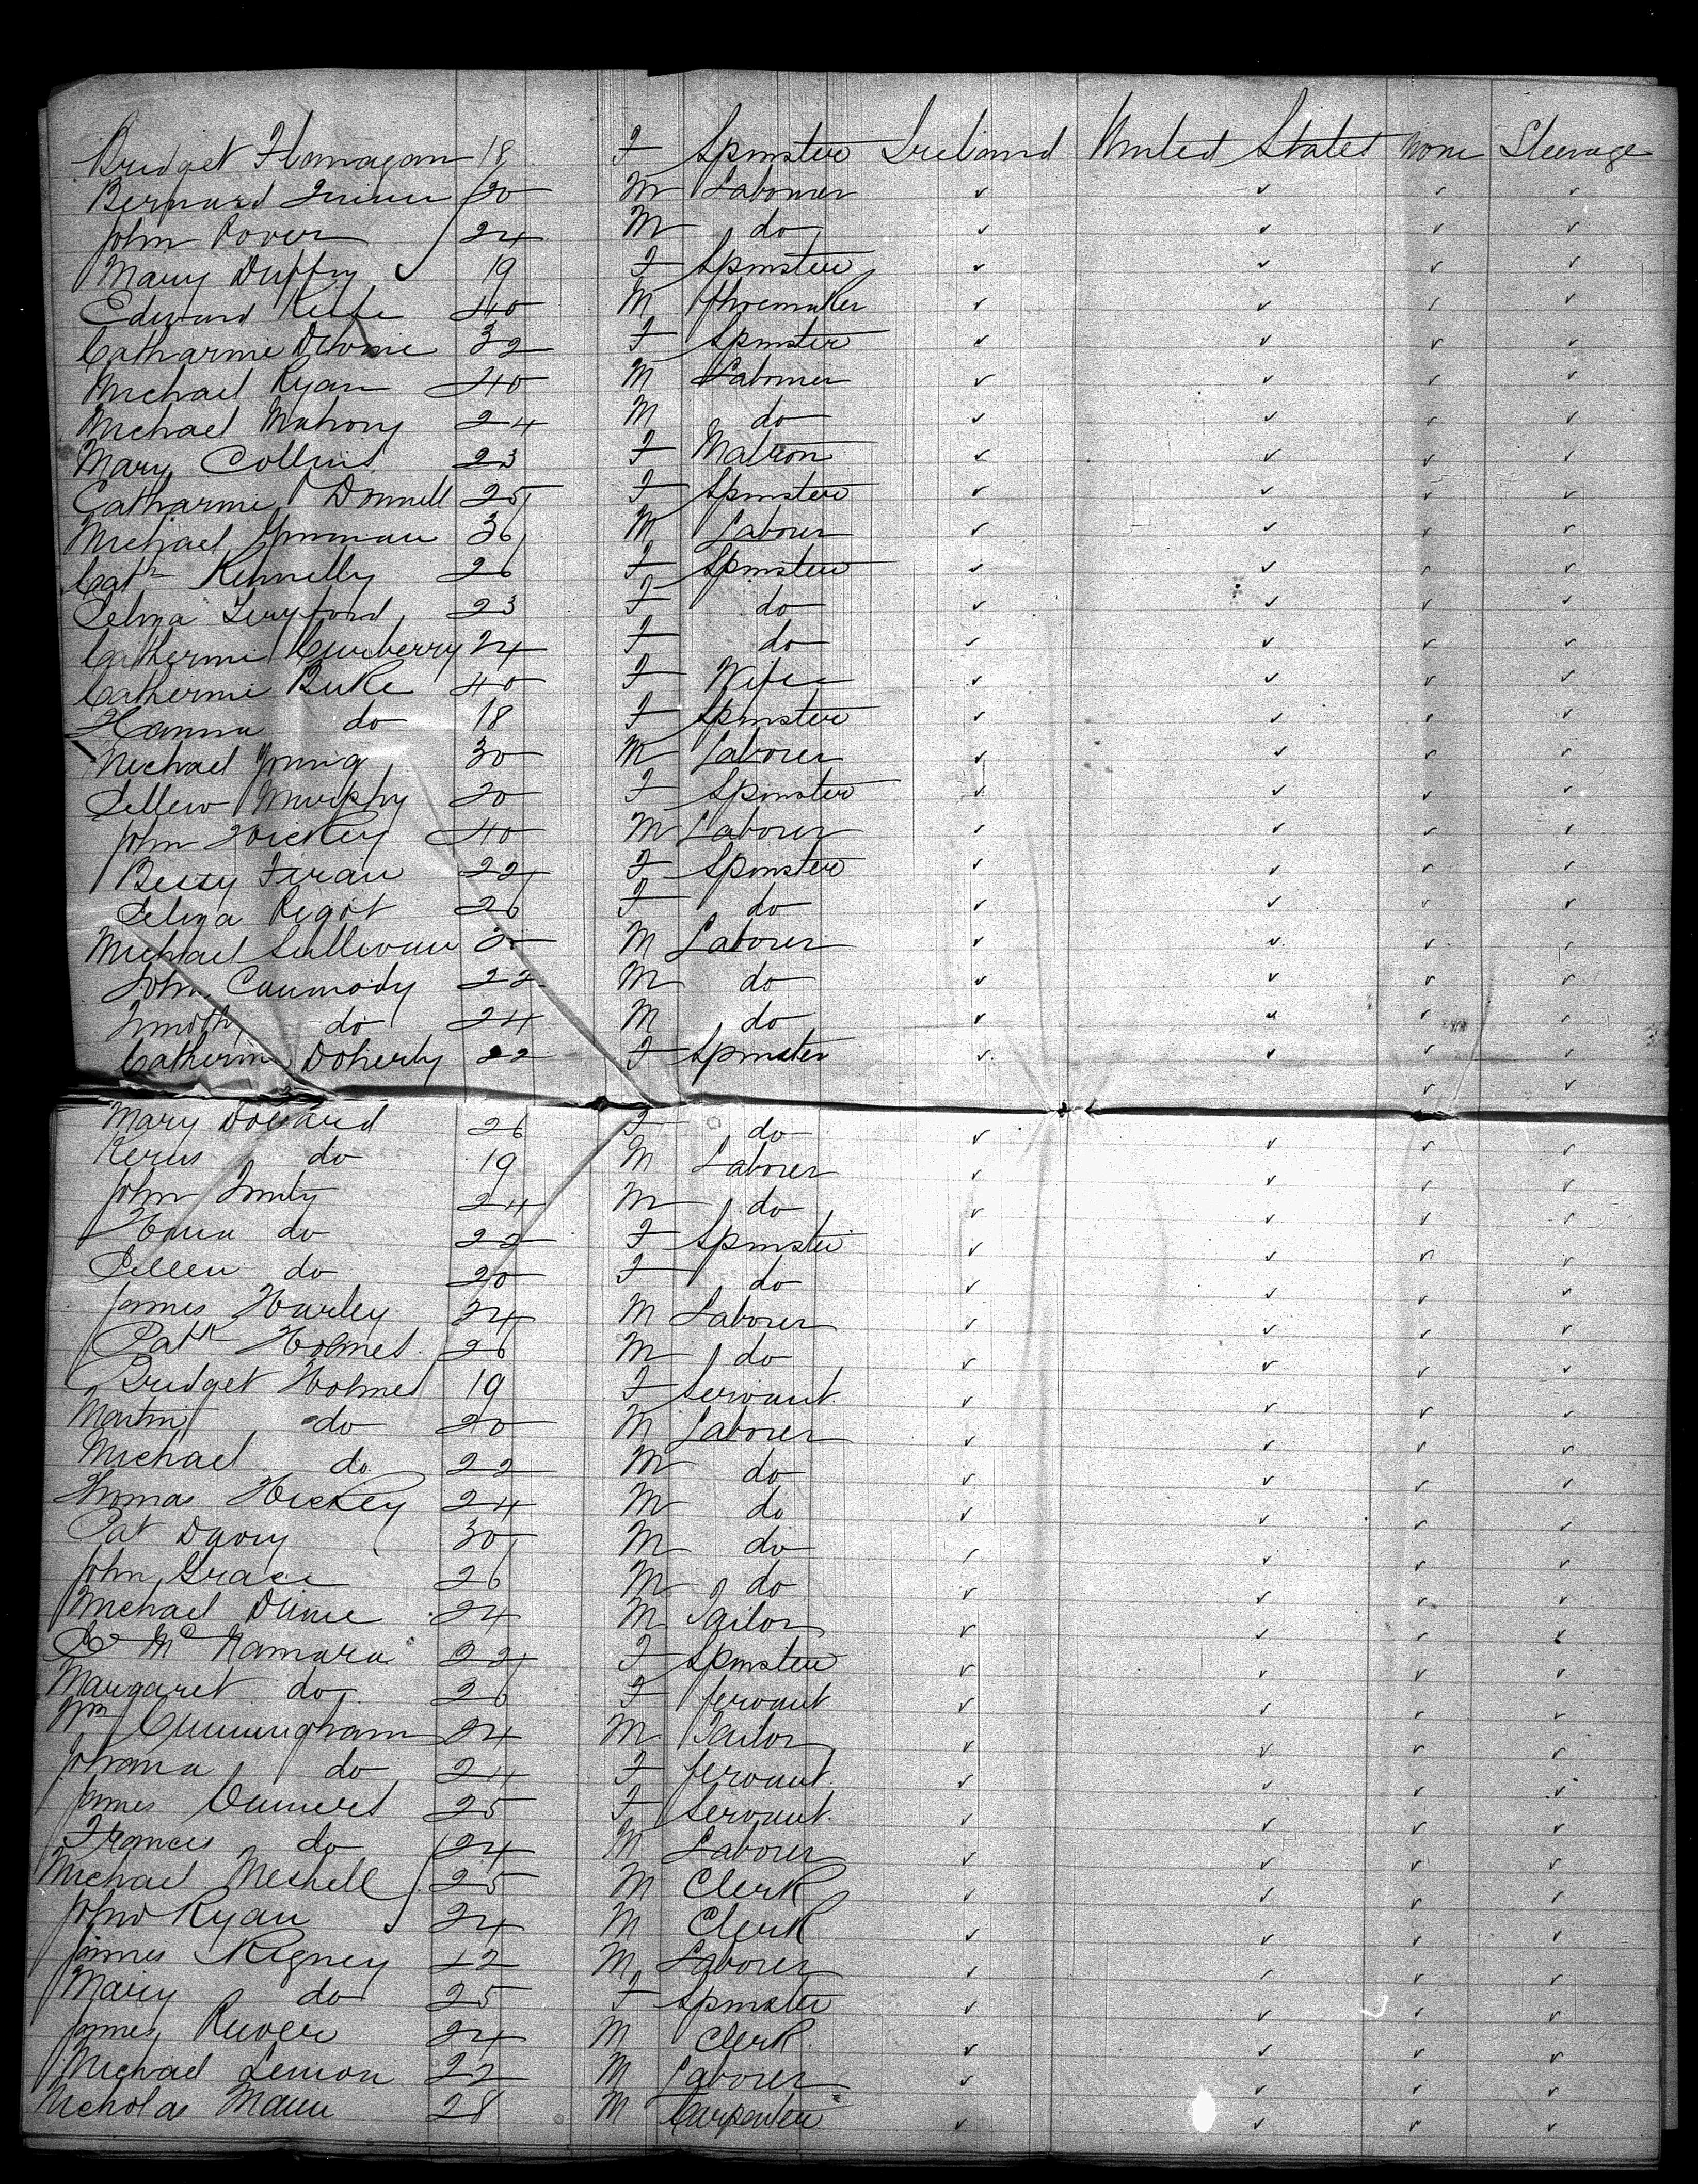 Bridget Flanagan 18 F Spinster Ireland United States None Steerage
Bernard Quinn 20 M Laborer ✓ ✓ ✓ ✓
John Power 24 M do ✓ ✓ ✓ ✓
Mary Duffy 19 F Spinster ✓ ✓ ✓ ✓
Edward Keefe 40 M Shoemaker ✓ ✓ ✓ ✓
Catharine 32 F Spinster ✓ ✓ ✓ ✓
Michael Ryan 40 M Laborer ✓ ✓ ✓ ✓
Michael Mahony 24 M do ✓ ✓ ✓ ✓
Mary Collins 23 F Matron ✓ ✓ ✓ ✓
Catharine O Donnell 25 F Spinster ✓ ✓ ✓ ✓
Michael 36 M Laborer ✓ ✓ ✓ ✓
Cath Kennelly 26 F Spinster ✓ ✓ ✓ ✓
23 F do ✓ ✓ ✓ ✓
Catherine 24 F do ✓ ✓ ✓ ✓
Catherine Burke 40 F Wife ✓ ✓ ✓ ✓
Hanna do 18 F Spinster ✓ ✓ ✓ ✓
Michael Young 30 M Laborer ✓ ✓ ✓ ✓
Ellen Murphy 20 F Spinster ✓ ✓ ✓ ✓
John Hickey 40 M Laborer ✓ ✓ ✓ ✓
Bessy 22 F Spinster ✓ ✓ ✓ ✓
Eliza 26 F do ✓ ✓ ✓ ✓
Michael Sullivan M Laborer ✓ ✓ ✓ ✓
John Caumody 22 M do ✓ ✓ ✓ ✓
Timothy do 24 M do ✓ ✓ ✓ ✓
Catherine Doherty 22 F Spinster ✓ ✓ ✓ ✓
Mary 26 F do ✓ ✓ ✓ ✓
do 19 M Laborer ✓ ✓ ✓ ✓
John 24 M do ✓ ✓ ✓ ✓
do 22 F Spinster ✓ ✓ ✓ ✓
Ellen do 20 F do ✓ ✓ ✓ ✓
James Hurley 24 M Laborer ✓ ✓ ✓ ✓
Patk Holmes 26 M do ✓ ✓ ✓ ✓
Bridget Holmes 19 F Servant ✓ ✓ ✓ ✓
Martin do 20 M Laborer ✓ ✓ ✓ ✓
Michael do 22 M do ✓ ✓ ✓ ✓
Thomas Hickey 24 M do ✓ ✓ ✓ ✓
Pat Davy 30 M do ✓ ✓ ✓ ✓
John Grace 26 M do ✓ ✓ ✓ ✓
Michael 24 M Tailor ✓ ✓ ✓ ✓
Mc Namara 22 F Spinster ✓ ✓ ✓ ✓
Margaret do 26 F Servant ✓ ✓ ✓ ✓
Wm Cunningham 24 M Tailor ✓ ✓ ✓ ✓
Johana do 24 F Servant ✓ ✓ ✓ ✓
James 25 F Servant ✓ ✓ ✓ ✓
Frances do 24 M Laborer ✓ ✓ ✓ ✓
Michael Meskell 25 M Clerk ✓ ✓ ✓ ✓
John Ryan 24 M Clerk ✓ ✓ ✓ ✓
James Rigney 22 M Laborer ✓ ✓ ✓ ✓
Mary do 25 F Spinster ✓ ✓ ✓ ✓
James 24 M Clerk ✓ ✓ ✓ ✓
Michael Lemon 22 M Laborer ✓ ✓ ✓ ✓
Nicholas Maun 28 M Carpenter ✓ ✓ ✓ ✓